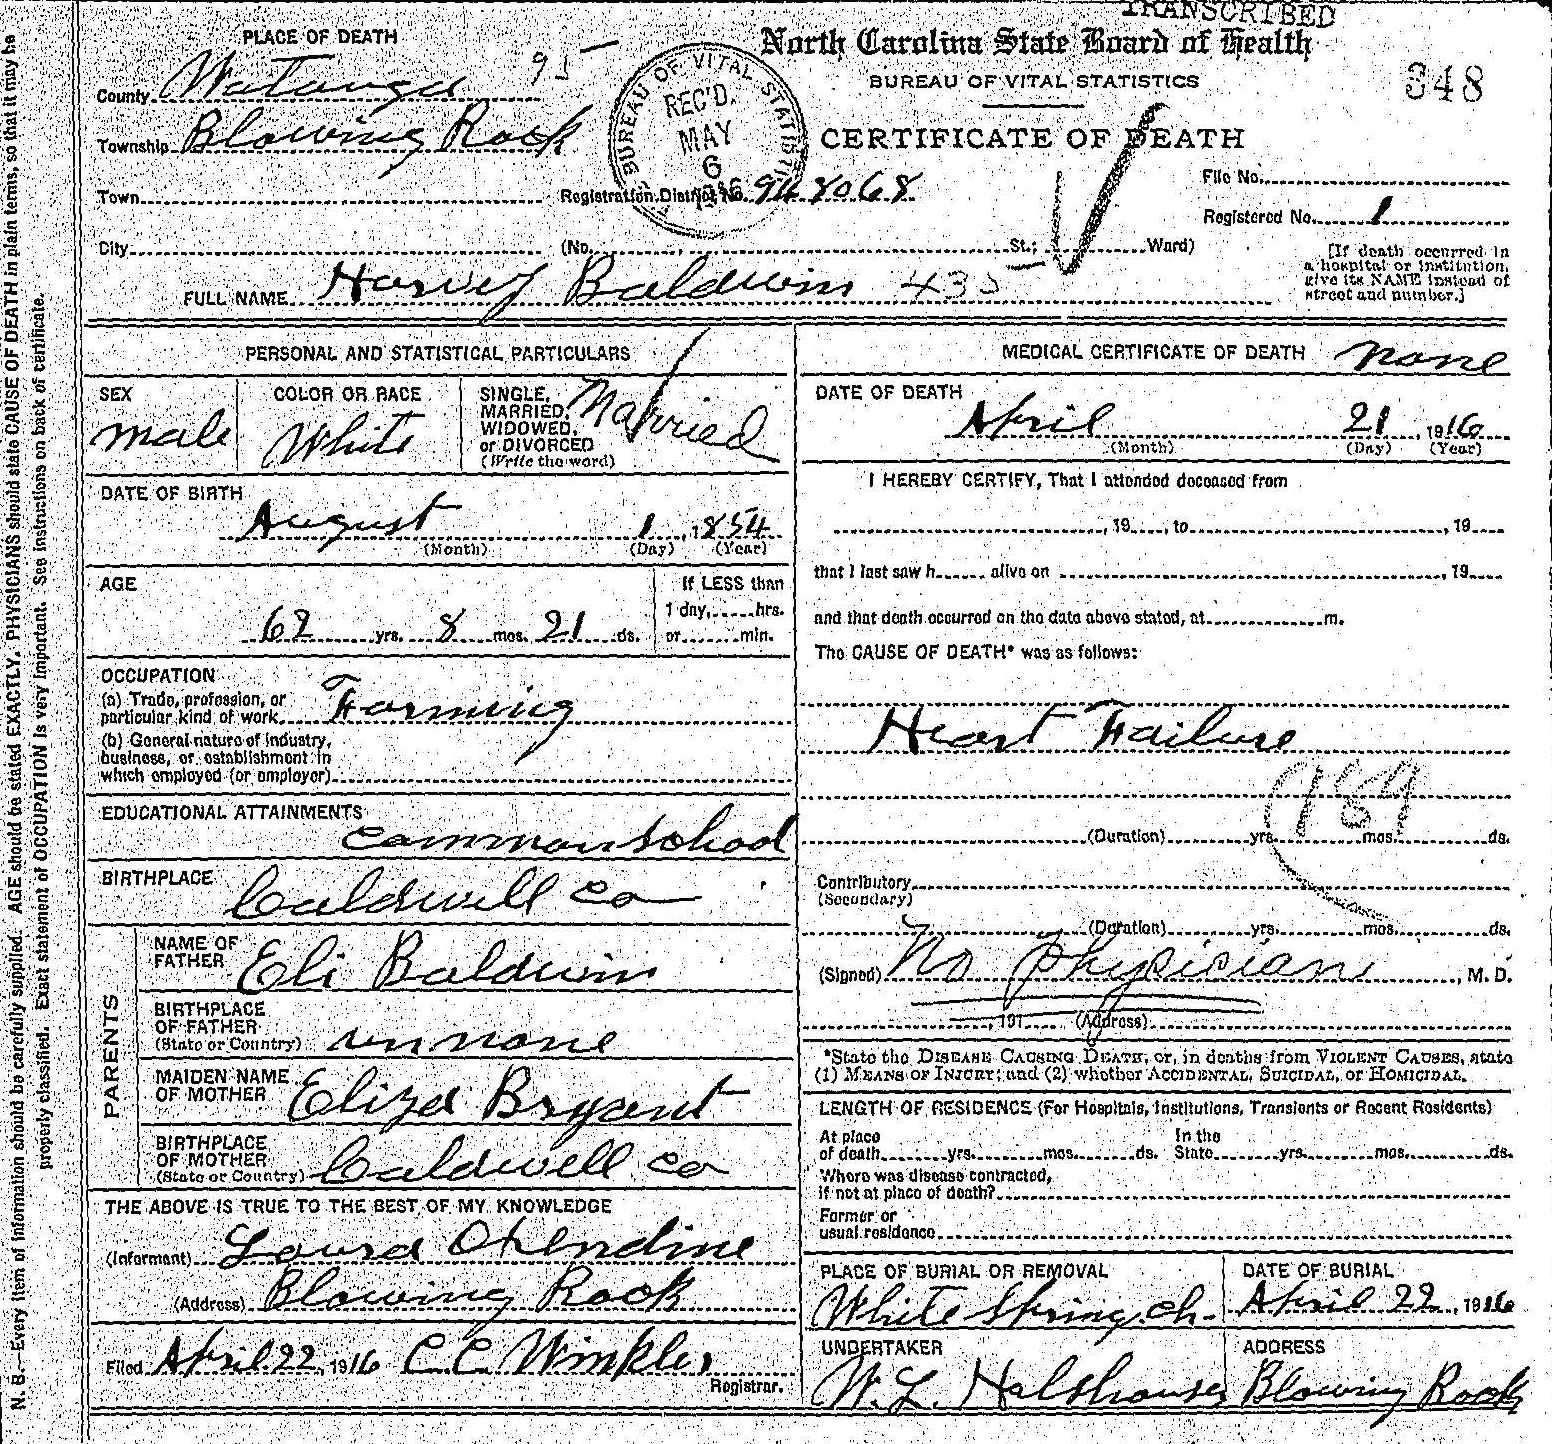 TRANSCRIBED
PLACE OF DEATH
North Carolina State Board of Health
BUREAU OF VITAL STATISTICS
348
County Watauga 95
BUREAU OF VITAL STATISTICS
REC'D.
MAY
6
1916
CERTIFICATE OF DEATH
Township Blowing Rock
Town
Registration District No. 948068
File No.
Registered No. 1
City (No. St.; Ward)
[If death occurred in
a hospital or institution,
give its NAME instead of
street and number.]
FULL NAME Harvey Baldwin 435
PERSONAL AND STATISTICAL PARTICULARS
SEX
male
COLOR OR RACE
White
SINGLE,
MARRIED,
WIDOWED,
or DIVORCED
(Write the word)
Married
DATE OF BIRTH
August 1, 1854
(Month) (Day) (Year)
AGE
62 yrs. 8 mos. 21 ds.
If LESS than
1 day, hrs.
or min.
OCCUPATION
(a) Trade, profession, or
particular kind of work Farming
(b) General nature of industry,
business, or establishment in
which employed (or employer)
EDUCATIONAL ATTAINMENTS
common school
BIRTHPLACE
Caldwell co
PARENTS
NAME OF
FATHER Eli Baldwin
BIRTHPLACE
OF FATHER
(State or Country) un none
MAIDEN NAME
OF MOTHER Eliza Bryant
BIRTHPLACE
OF MOTHER
(State or Country) Caldwell co
THE ABOVE IS TRUE TO THE BEST OF MY KNOWLEDGE
(Informant) Laura
(Address) Blowing Rock
Filed April 22, 1916 C. C. Winkler
Registrar.
MEDICAL CERTIFICATE OF DEATH none
DATE OF DEATH
April 21, 1916
(Month) (Day) (Year)
I HEREBY CERTIFY, That I attended deceased from
, 19 , to , 19
that I last saw h alive on , 19
and that death occurred on the date above stated, at m.
The CAUSE OF DEATH* was as follows:
Heart Failure
189
(Duration) yrs. mos. ds.
Contributory
(Secondary)
(Duration) yrs. mos. ds.
(Signed) No physician, M. D.
, 191 (Address)
*State the DISEASE CAUSING DEATH, or, in deaths from VIOLENT CAUSES, state
(1) MEANS OF INJURY; and (2) whether ACCIDENTAL, SUICIDAL, or HOMICIDAL.
LENGTH OF RESIDENCE (For Hospitals, Institutions, Transients or Recent Residents)
At place
of death yrs. mos. ds.
In the
State yrs. mos. ds.
Where was disease contracted,
if not at place of death?
Former or
usual residence
PLACE OF BURIAL OR REMOVAL
White Spring ch.
DATE OF BURIAL
April 22, 1916
UNDERTAKER
W. L. Holshouser
ADDRESS
Blowing Rock
N. B.—Every item of information should be carefully supplied. AGE should be stated EXACTLY. PHYSICIANS should state CAUSE OF DEATH in plain terms, so that it may be
properly classified. Exact statement of OCCUPATION is very important. See instructions on back of certificate.